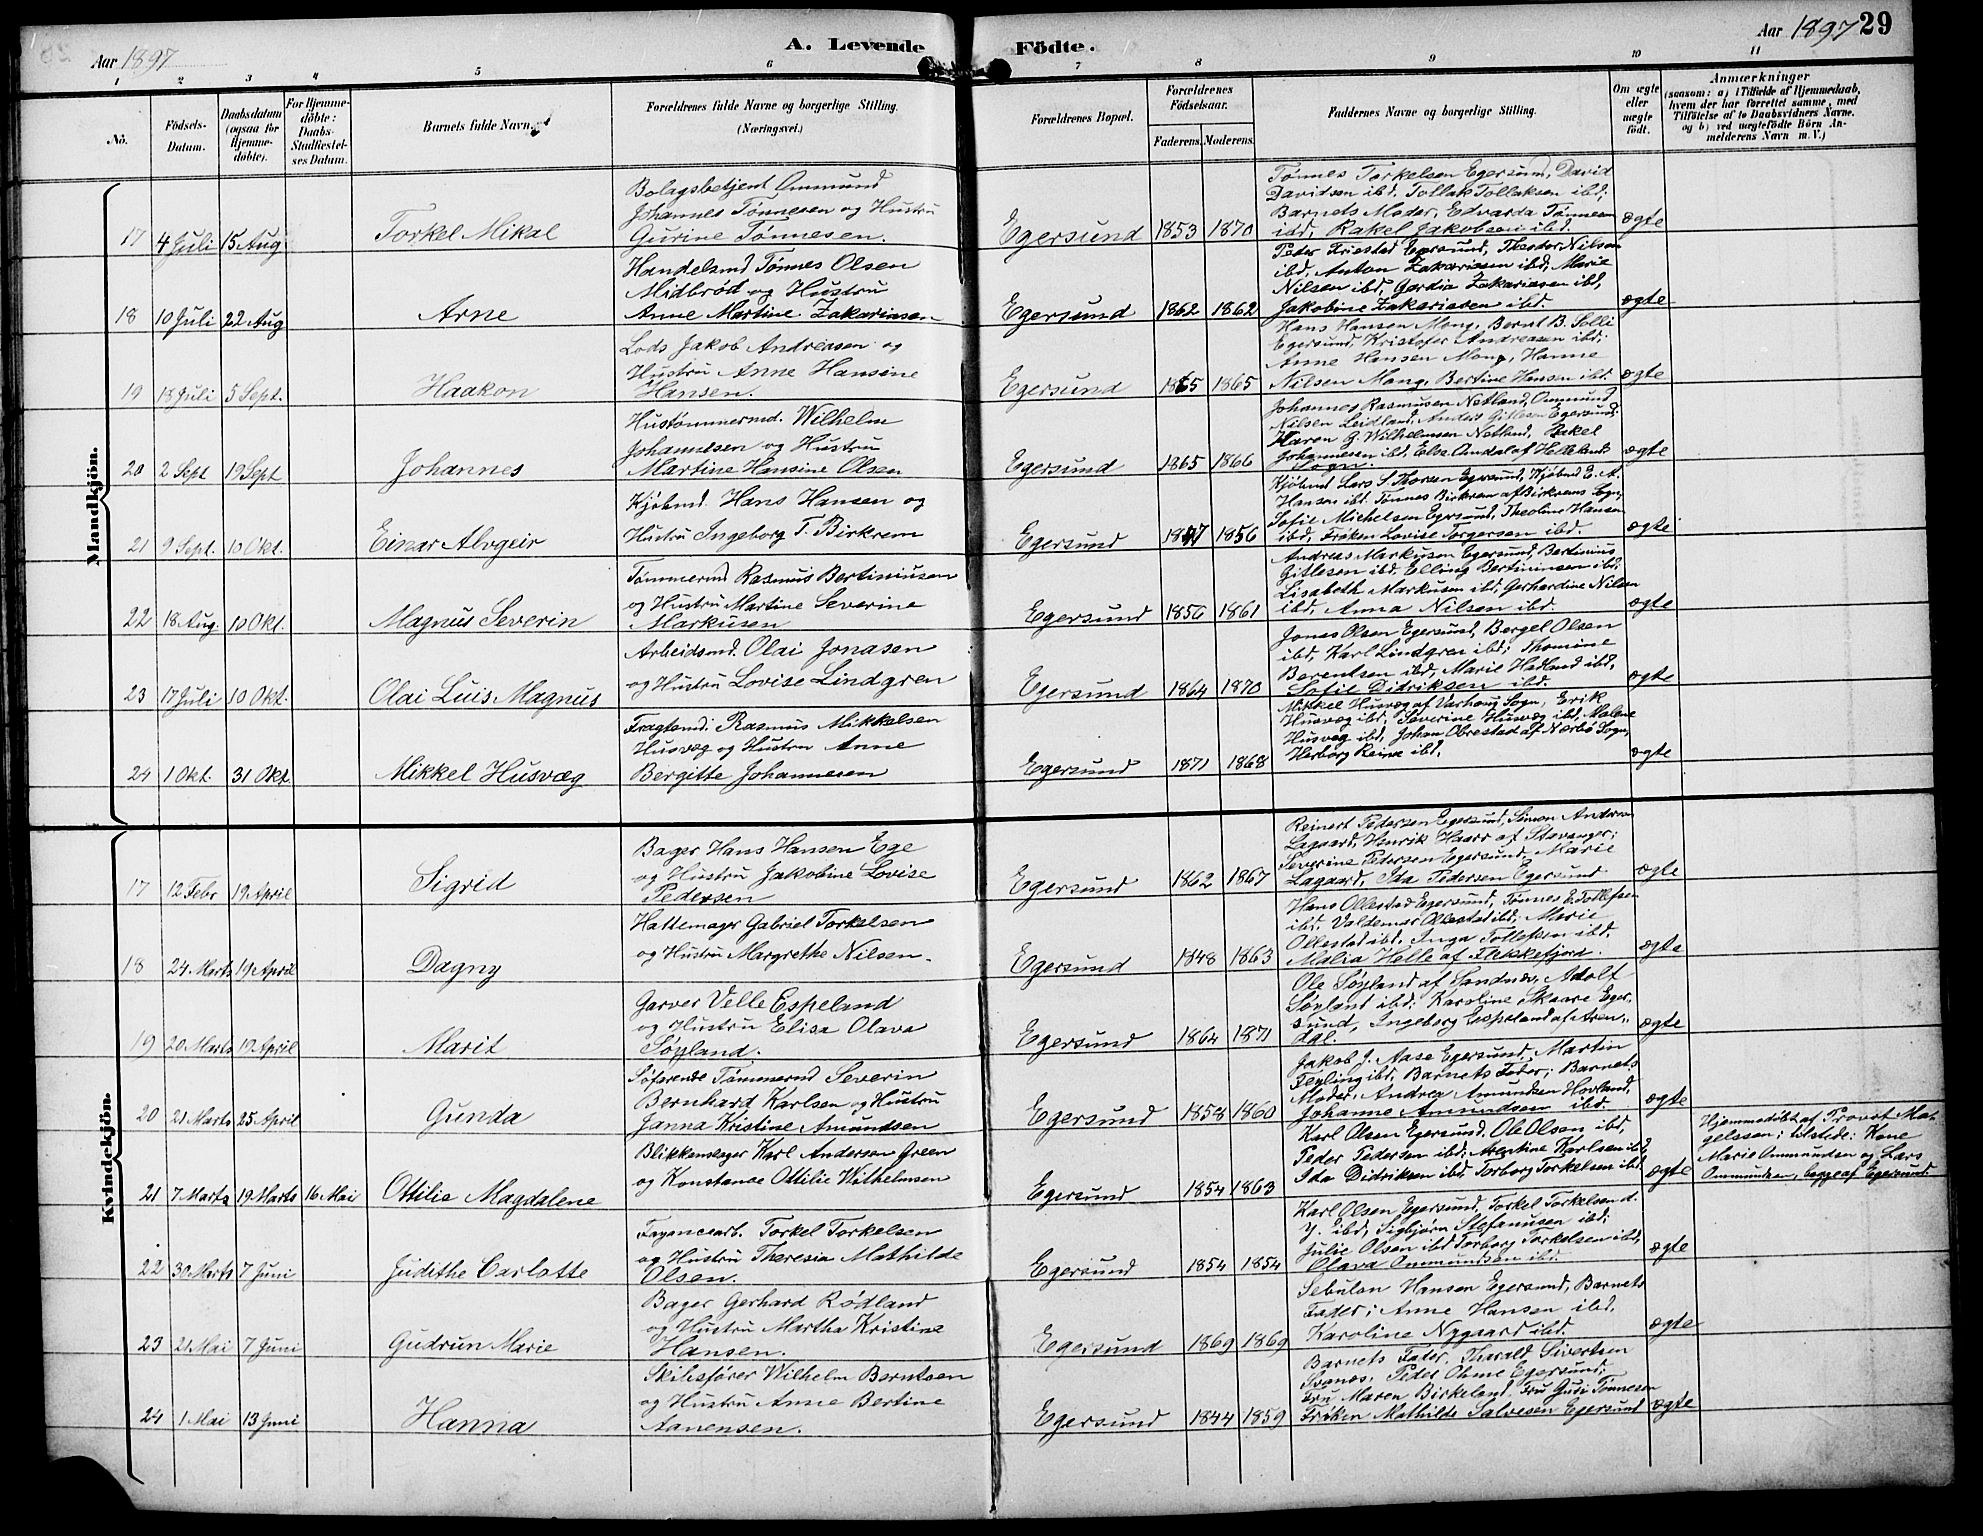 Aar 1897
A. Levende Födte.
Aar 1897 29
1 2 3 4 5 6 7 8 9 10 11
No.
Födsels-
Datum.
Daabsdatum
(ogsaa for
Hjemme-
döbte).
For Hjemme-
döbte:
Daabs-
Stadfæstel-
ses Datum.
Barnets fulde Navn.
Forældrenes fulde Navne og borgerlige Stilling.
(Næringsvei.)
Forældrenes Bopæl.
Forældrenes
Födselsaar.
Faderens. Moderens.
Faddernes Navne og borgerlige Stilling.
Om ægte
eller
uægte
födt.
Anmærkninger
(saasom: a) i Tilfælde af Hjemmedaab,
hvem der har forrettet samme, med
Tilföielse af to Daabsvidners Navne,
og b) ved uægtefödte Börn An-
melderens Navn m. V.)
Mandkjön.
17 4 Juli 15 Aug. Torkel Mikal
Bolagsbetjent Ommund
Johannes Tønnesen og Hustru
Gurine Tønnesen.
Egersund 1853 1870
Tønnes Torkelsen Egersund, David
Davidsen ibd, Tollak Tollaksen ibd;
Barnets Moder, Edvarda Tønnesen
ibd, Rakel Jakobsen ibd.
ægte
18 10 Juli 22 Aug Arne
Handelsmd Tønnes Olsen
Midbrød og Hustru
Anne Martine Zakariasen
Egersund 1862 1862
Peder Friestad Egersund, Theodor Nilsen
ibd, Anton Zakariasen ibd; Marie
Nilsen ibd, Gardia Zakariasen ibd,
Jakobine Zakariasen ibd.
ægte
19 18 Juli 5 Sept. Haakon
Lods Jakob Andreasen og
Hustru Anne Hansine
Hansen.
Egersund 1865 1865
Hans Hansen Mong, Bernt B. Solli
Egersund Kristofer Andreasen ibd;
Anne Hansen Mong, Hanne
Nilsen Mong, Bertine Hansen ibd.
ægte
20 2 Sept 19 Sept Johannes
Hustømmermd. Wilhelm
Johannesen og Hustru
Martine Hansine Olsen
Egersund 1865 1866
Johannes Rasmusen Netland, Ommund
Nilsen Leidland, Anders Gitlesen Egersund;
Karen G. Wilhelmsen Netland, Rakel
Johannesen ibd, Elsa Omdal af Hellelands
Sogn.
ægte
21 9 Sept. 10 Okt. Einar Alvgeir
Kjøbmd. Hans Hansen og
Hustru Ingeborg T. Birkrem
Egersund 1847 1856
Kjøbmd Lars S. Thorsen Egersund, Kjøbmd E. A.
Hansen ibd. Tønnes Birkrem af Birkrems Sogn,
Sofie Michelsen Egersund, Theoline Hansen
ibd, Frøken Lovise Torgersen ibd.
ægte
22 18 Aug. 10 Okt. Magnus Severin
Tømmermd Rasmus Bertiniusen
og Hustru Martine Severine
Markusen
Egersund 1856 1861
Andreas Markusen Egersund, Bertinius
Gitlesen ibd. Elling Bertiniusen ibd;
Lisabeth Markusen ibd, Gerhardine Nilsen
ibd, Anna Nilsen ibd.
ægte
23 17 Juli 10 Okt. Olai Luis Magnus
Arbeidsmd. Olai Jonasen
og Hustru Lovise Lindgren
Egersund 1864 1870
Jonas Olsen Egersund, Bergel Olsen
ibd, Karl Lindgren ibd; Thomine
Berentsen ibd, Marie Hadland ibd,
Sofie Didriksen ibd.
ægte
24 1 Okt. 31 Okt. Mikkel Husvæg
Fragtemd: Rasmus Mikkelsen
Husvæg og Hustru Anne
Bergitte Johannesen
Egersund 1871 1868
Mikkel Husvæg af Varhoug Sogn, Erik
Husvæg ibd, Severine Husvæg ibd, Malene
Husvæg ibd, Johan Obrestad af Nærbø Sogn,
Herborg Reime ibd.
ægte
Kvindekjön.
17 12 Febr 19 April Sigrid
Bager Hans Hansen Ege
og Hustru Jakobine Lovise
Pedersen
Egersund 1862 1867
Reinert Pedersen Egersund, Simon Andersen
Lagaard, Henrik Haarr af Stavanger;
Severine Pedersen Egersund, Marie
Lagaard, Ida Pedersen Egersund
ægte
18 24 Marts 19 April Dagny
Hattemager Gabriel Torkelsen
og Hustru Margrethe Nilsen.
Egersund 1848 1863
Hans Ollestad Egersund, Tønnes E. Tollefsen
ibd. Valdemar Ollestad ibd; Marie
Ollestad ibd. Inga Tollefsen ibd.
Malia Helle af Flekkefjord.
ægte
19 20 Marts 19 April Marit
Garver Velle Espeland
og Hustru Elisa Olava
Søyland.
Egersund 1864 1871
Ole Søyland af Sandnæs, Adolf
Søyland ibd; Karoline Skaare Eger-
sund, Ingeborg Espeland af Aren-
dal.
ægte
20 21 Marts 25 April Gunda
Søfarende Tømmermd Severin
Bernhard Karlsen og Hustru
Janna Kristine Amundsen
Egersund 1858 1860
Jakob J. Aase Egersund, Martin
Feyling ibd, Barnets Fader; Barnets
Moder, Andrea Amundsen Hovland,
Johanne Amundsen ibd.
ægte
21 7 Marts 19 Marts 16 Mai Ottilie Magdalene
Blikkenslager Karl Andersen Green
og Konstanse Ottilie Wilhelmsen
Egersund 1854 1863
Karl Olsen Egersund, Ole Olsen ibd,
Peder Pedersen ibd; Arentine Karlsen ibd,
Ida Didriksen ibd, Torborg Torkelsen ibd.
ægte
Hjemmedøbt af Provst Ma-
gelssen; tilstede: Kone
Marie Ommundsen og Lars
Ommundsen, begge af Egersund.
22 30 Marts 7 Juni Judithe Carlotte
Fayancearb. Torkel Torkelsen
og Hustru Theresia Mathilde
Olsen.
Egersund 1854 1854
Karl Olsen Egersund, Torkel Torkelsen d.
Y. ibd, Sigbjørn Stefanusen ibd;
Julie Olsen ibd Torborg Torkelsen ibd,
Olava Ommundsen ibd.
ægte
23 21 Mai 7 Juni Gudrun Marie
Bager Gerhard Rødland
og Hustru Martha Kristine
Hansen.
Egersund 1869 1869
Sebulon Hansen Egersund, Barnets
Fader; Anne Hansen ibd,
Karoline Nygaard ibd.
ægte
24 1 Mai 13 Juni Hanna
Skibsfører Wilhelm Berntsen
og Hustru Anne Bertine
Aanensen.
Egersund 1844 1859
Barnets Fader, Tharald Sivertsen
Svanes, Peder Ohme Egersund;
Fru Maren Birkeland, Fru Guri Tønnesen
Frøken Mathilde Salvesen Egersund
ægte